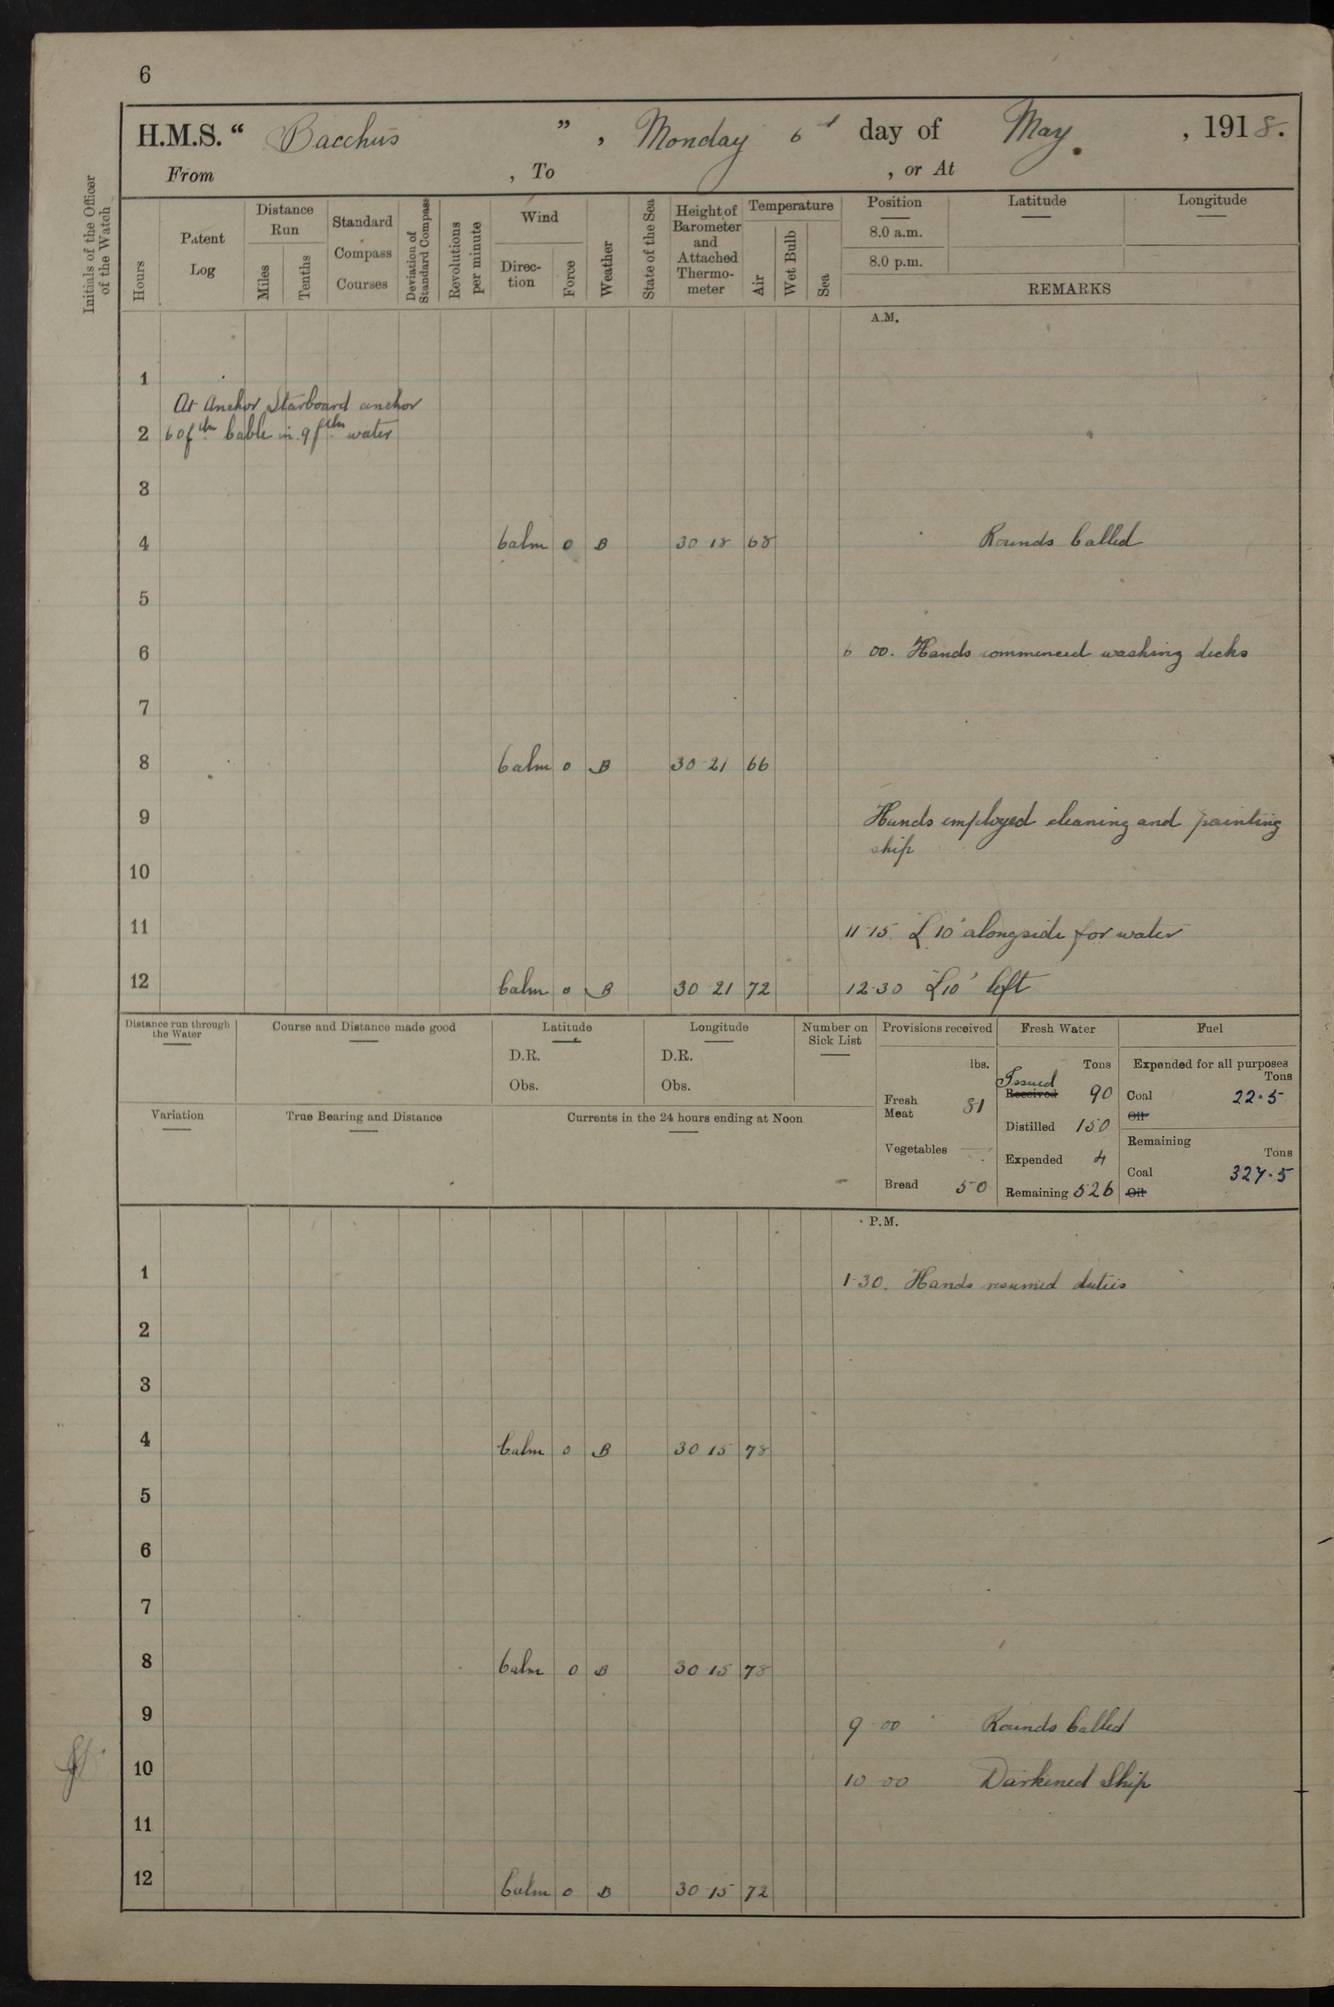 6
H.M.S. “ Bacchus ” , Monday 6th day of May , 1918.
From , To , or At
Initials of the Officer of the Watch
Hours
Patent Log
Distance Run
Miles
Tenths
Standard Compass Courses
Deviation of Standard Compass
Revolutions per minute
Wind
Direc-tion
Force
Weather
State of the Sea
Height of Barometer and Attached Thermo-meter
Temperature
Air
Wet Bulb
Sea
Position
8.0 a.m.
8.0 p.m.
Latitude
Longitude
REMARKS
A.M.
1
At Anchor Starboard anchor
2 60 fthm Cable in 9 fthm water
3
4 Calm 0 B 30 18 68 Rounds Called
5
6 6 00. Hands commenced washing decks
7
8 Calm 0 B 30 21 66
9 Hands employed cleaning and painting
ship
10
11 11-15 L 10' alongside for water
12 Calm 0 B 30 21 72 12-30 L10' left
Distance run through the Water
Course and Distance made good
Latitude
D.R.
Obs.
Longitude
D.R.
Obs.
Number on Sick List
Variation
True Bearing and Distance
Currents in the 24 hours ending at Noon
Provisions received
lbs.
Fresh Meat 81
Vegetables —
Bread 50
Fresh Water
Tons
Issued
Received 90
Distilled 150
Expended 4
Remaining 526
Fuel
Expended for all purposes
Tons
Coal 22.5
Oil
Remaining
Tons
Coal 327.5
Oil
P.M.
1 1-30. Hands resumed duties
2
3
4 Calm 0 B 30 15 78
5
6
7
8 Calm 0 B 30 15 78
9 9 00 Rounds Called
10 10 00 Darkened Ship
11
12 Calm 0 B 30 15 72